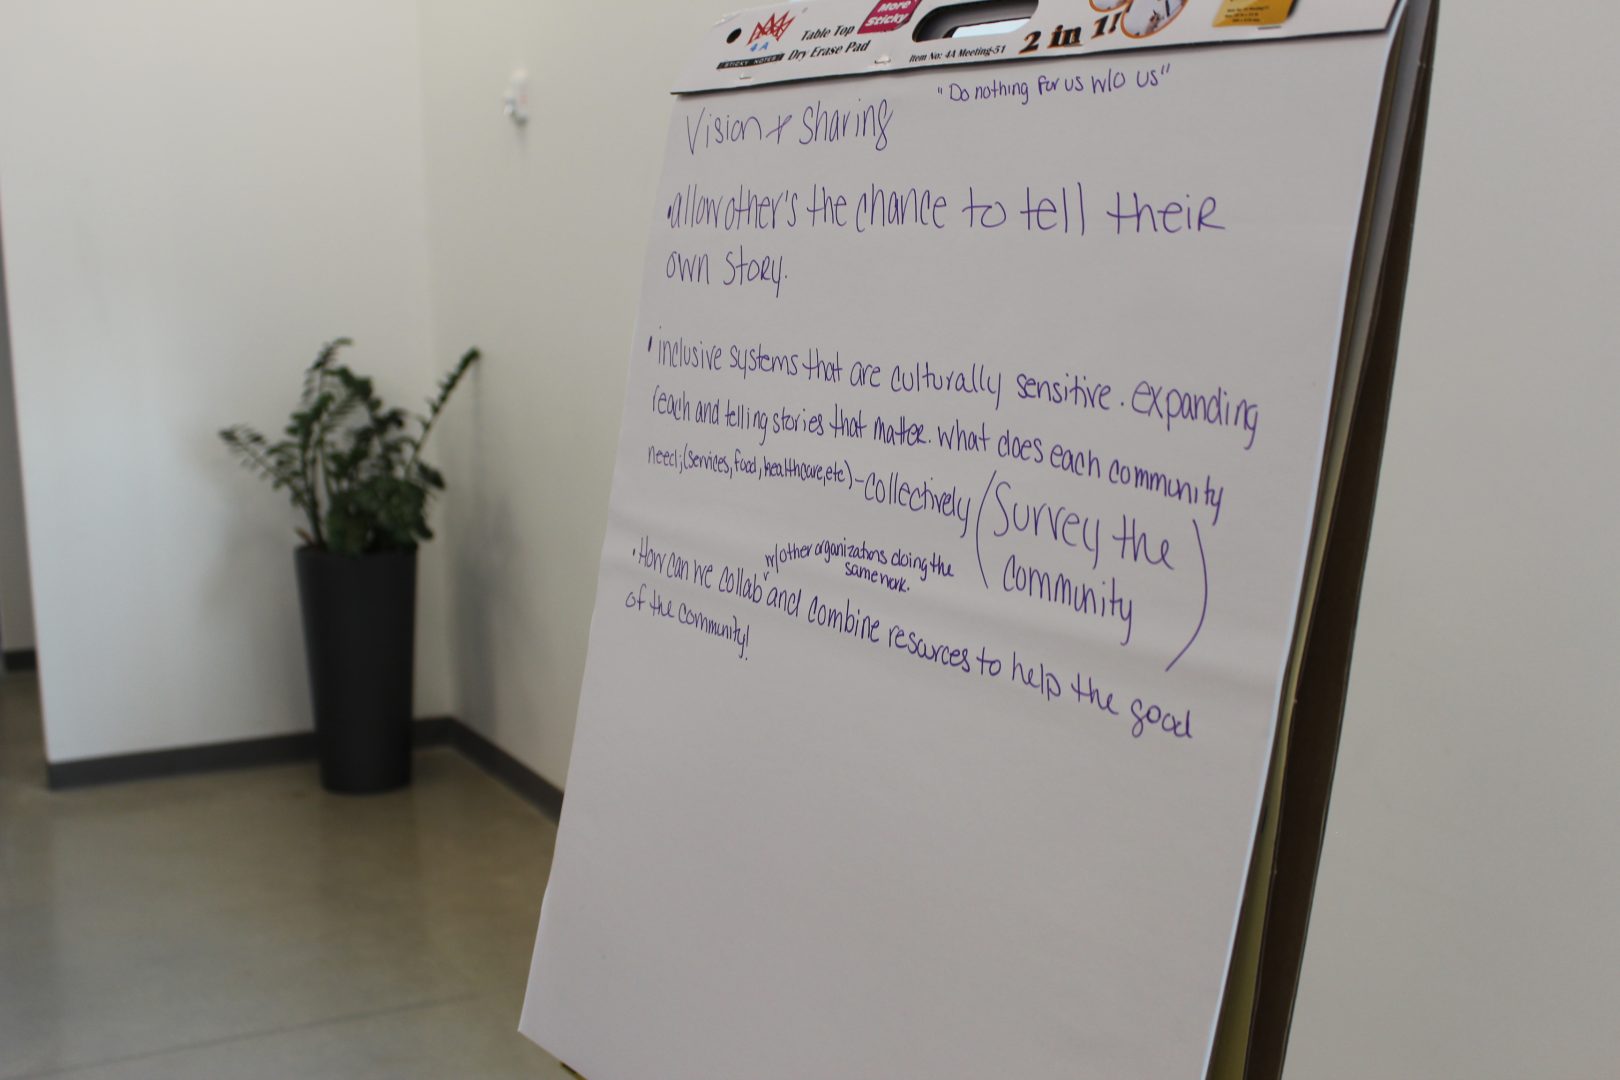 More Sticky
4A
STICKY NOTES
Table Top
Dry Erase Pad
Item No: 4A Meeting-51
2 in 1!
"Do nothing for us w/o us"
Vision + Sharing
•allow other's the chance to tell their
own story.
•inclusive systems that are culturally sensitive. expanding
reach and telling stories that matter. what does each community
need; (services, food, healthcare, etc) - collectively (Survey the
community)
w/ other organizations doing the
same work.
•How can we collab ˅ and combine resources to help the good
of the community!